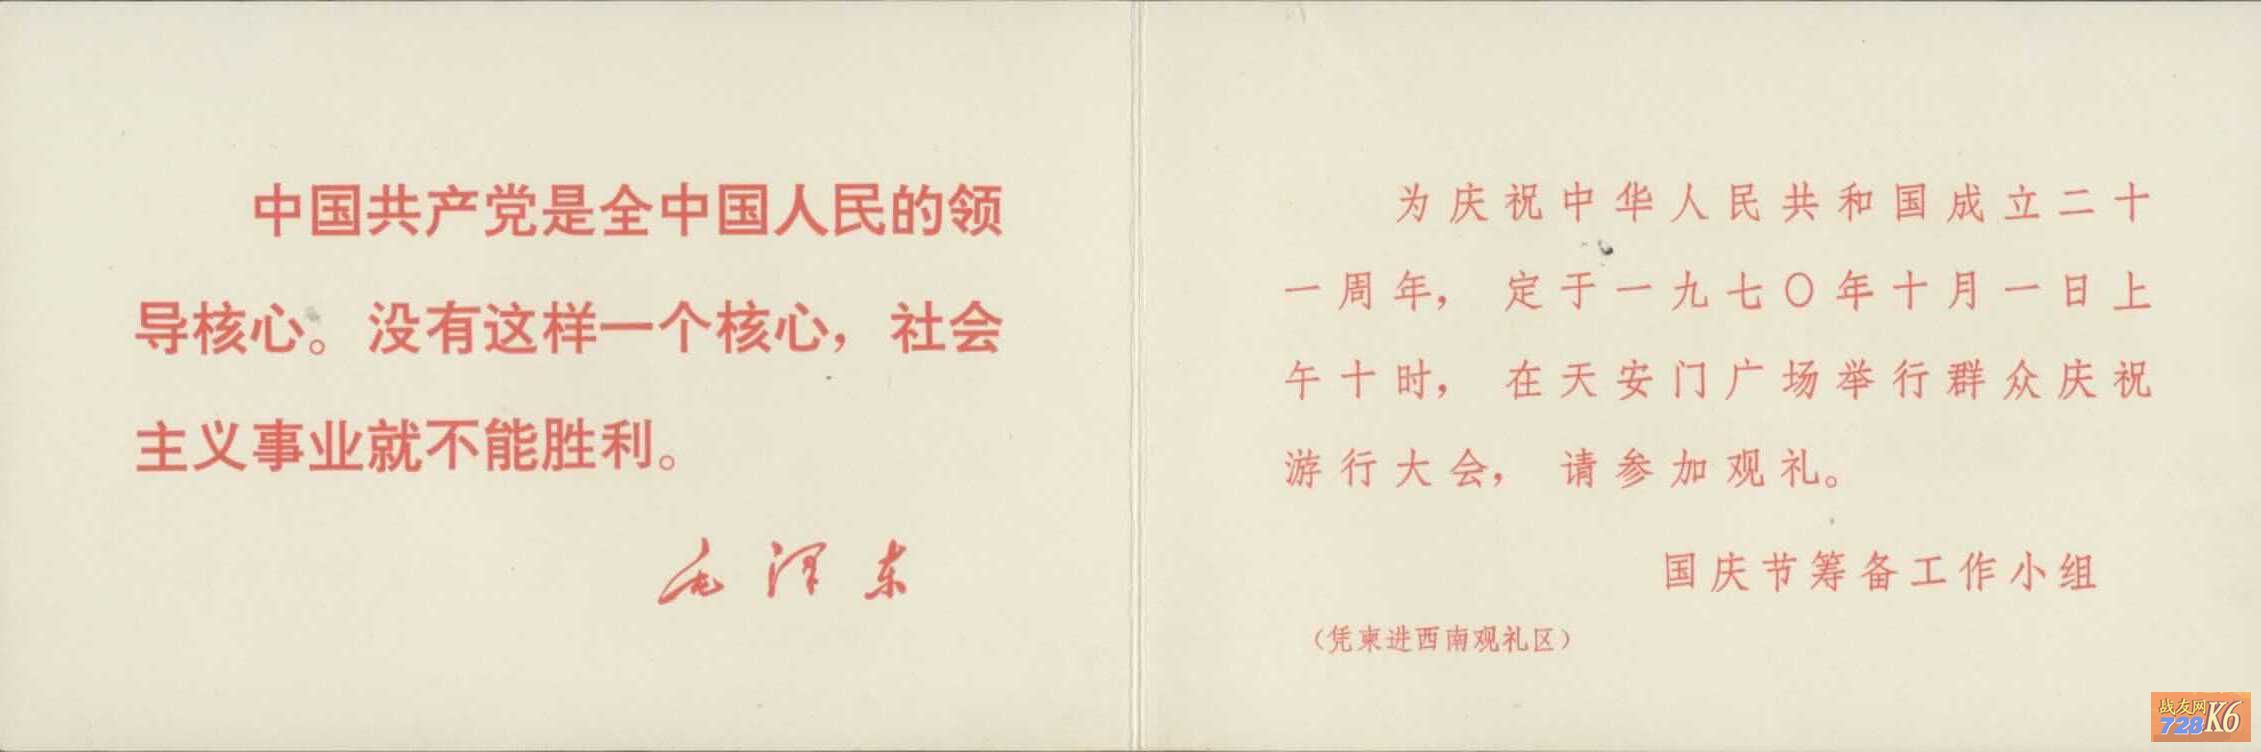 中国共产党是全中国人民的领
导核心。没有这样一个核心，社会
主义事业就不能胜利。
毛泽东
为庆祝中华人民共和国成立二十
一周年，定于一九七〇年十月一日上
午十时，在天安门广场举行群众庆祝
游行大会，请参加观礼。
国庆节筹备工作小组
（凭柬进西南观礼区）
战友网
728K6